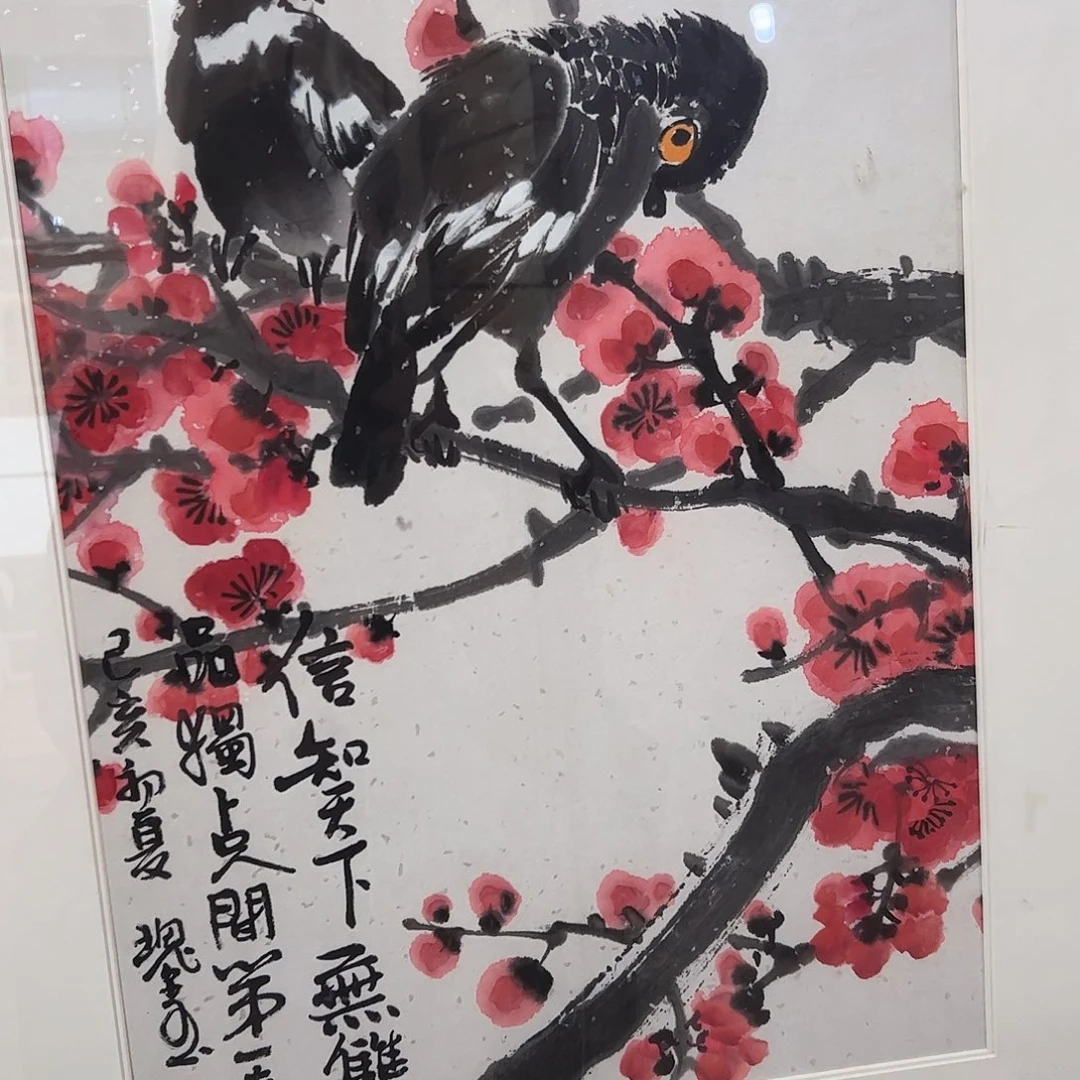 信知天下無雙
品獨占人間第一
己亥初夏